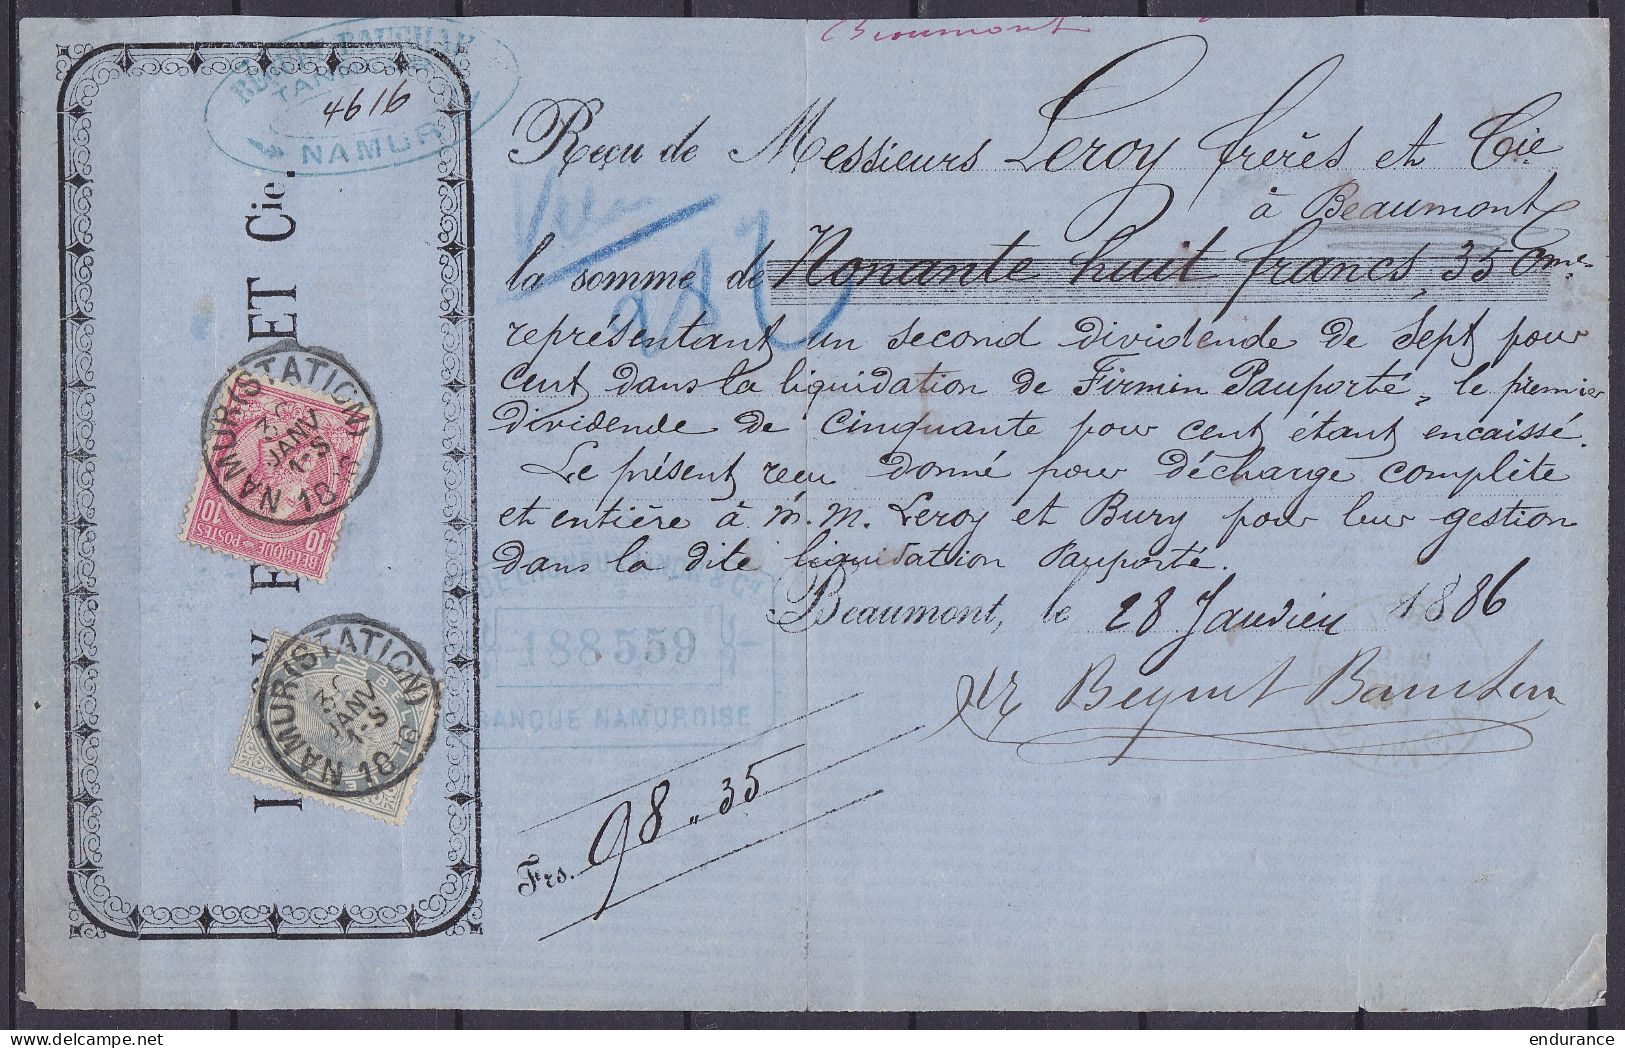 Beaumont
4616
TANNEUR
NAMUR
ET Cie.
Reçu de Messieurs Leroy frères et Cie
à Beaumont
la somme de Nonante huit francs, 35 Cmes
représentant un second dividende de Sept pour
cent dans la liquidation de Firmin Pauporté, le premier
dividende de Cinquante pour cent étant encaissé.
Le présent reçu donné pour décharge complète
et entière à M.M. Leroy et Bury pour leur gestion
dans la dite liquidation Pauporté.
Beaumont, le 28 Janvier 1886
188559
BANQUE NAMUROISE
Frs. 98 „ 35
NAMUR (STATION)
30
JANV
1-S
10
BELGIQUE-POSTES
10
NAMUR (STATION)
30
JANV
1-S
18
© delcampe.net
endurance